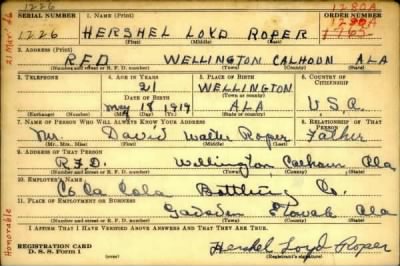 1226 1280A
SERIAL NUMBER 1. NAME (Print) ORDER NUMBER
1226 HERSHEL LOYD ROPER 1280A
(First) (Middle) (Last) 1765
2. ADDRESS (Print)
RFD WELLINGTON CALHOUN ALA
(Number and street or R. F. D. number) (Town) (County) (State)
3. TELEPHONE 4. AGE IN YEARS 5. PLACE OF BIRTH 6. COUNTRY OF CITIZENSHIP
21 WELLINGTON
DATE OF BIRTH
May 18 1919 ALA U.S.A.
(Exchange) (Number) (Mo.) (Day) (Yr.) (State or country)
7. NAME OF PERSON WHO WILL ALWAYS KNOW YOUR ADDRESS 8. RELATIONSHIP OF THAT PERSON
Mr David Walter Roper Father
(Mr., Mrs., Miss) (First) (Middle) (Last)
9. ADDRESS OF THAT PERSON
R.F.D. Wellington, Calhoun, Ala
(Number and street or R. F. D. number) (Town) (County) (State)
10. EMPLOYER'S NAME
Co Ca Cola Bottling Co.
11. PLACE OF EMPLOYMENT OR BUSINESS
Gadsden Etowah Ala
(Number and street or R. F. D. number) (Town) (County) (State)
I AFFIRM THAT I HAVE VERIFIED ABOVE ANSWERS AND THAT THEY ARE TRUE.
REGISTRATION CARD
D. S. S. Form 1 Hershel Loyd Roper
Honorable